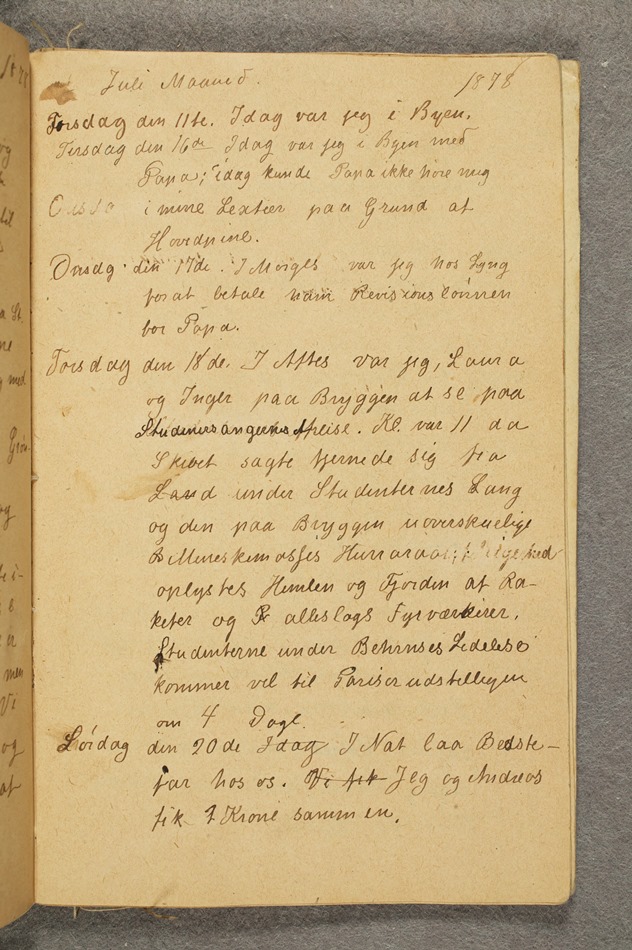 Juli Maaned. 1878
Torsdag den 11te. Idag var jeg i Byen.
Tirsdag den 16de Idag var jeg i Byen med
Papa; idag kunde Papa ikke høre mig
Onsda i mine Lextier paa Grund af
Hovedpine.
Onsdg den 17de. I Morges var jeg hos Lyng
forat betale ham Revisionslönnen
for Papa.
Torsdag den 18de. I Aftes var jeg, Laura
og Inger paa Bryggen at se paa
Studentersangernes Afreise. Kl. var 11 da
Skibet sagte fjernede sig fra
Land under Studenternes Sang
og den paa Bryggen uoverskuelige
Meneskemasses Hurraraab;
oplystes Himlen og Fjorden af Ra-
keter og allslags Fyrværkerier.
Studenterne under Behrnses Ledelse
kommer vel til Pariserudstilligen
om 4 Dage.
Lördag den 20de Idag I Nat laa Bedste-
far hos os. Vi fik Jeg og Andreas
fik 1 Krone sammen.